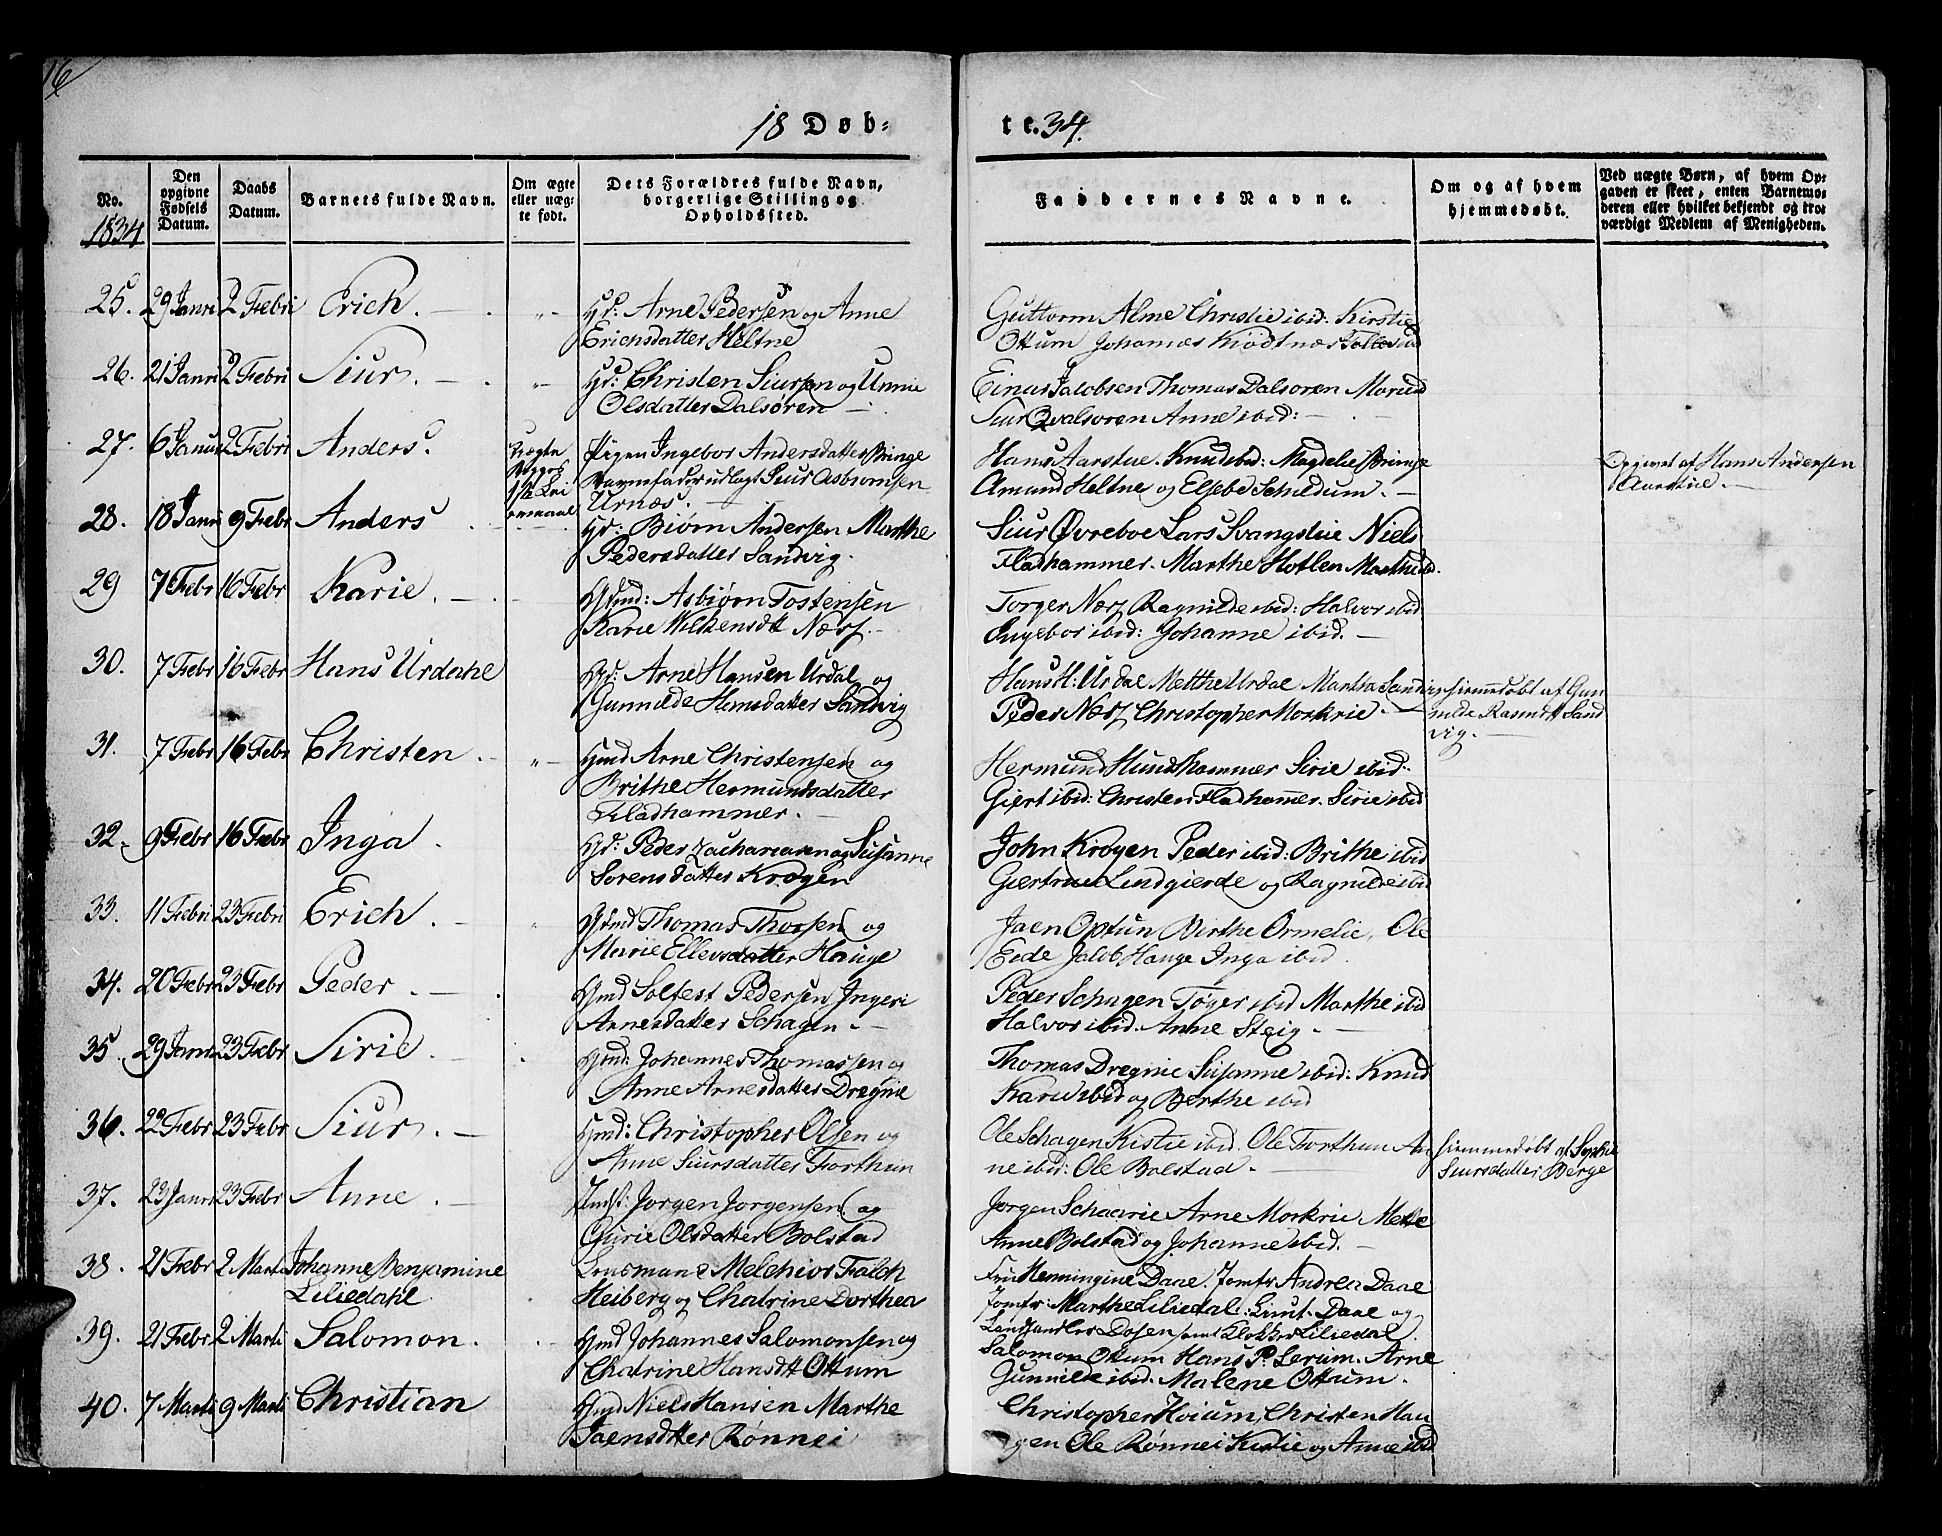 16
18 Døb-
te. 34.
No.
1834
Den opgivne Fødsels Datum.
Daabs Datum.
Barnets fulde Navn.
Om ægte eller uægte født.
Dets Forældres fulde Navn, borgerlige Stilling og Opholdssted.
Faddernes Navne.
Om og af hvem hjemmedøbt.
Ved uægte Børn, af hvem Opgaven er skeet, enten Barnemoderen eller hvilket bekjendt og troværdigt Medlem af Menigheden.
25. 29 Janri 2 Febri Erich. Gd: Arne Pedersen og Anne
Erichsdatter Heltne
Guttorm Alme Christie ibid: Kirstie
Ottum Johannes
26. 21 Janri 2 Febri Siur. Gd: Christen Siursen og Unnie
Olsdatter Dalsøren
Einar Jacobsen Thomas Dalsøren
Siur Qvalsøren Anne ibid:
27. 6 Janu 2 Febri Anders. Uægte
Pigen Ingebor Andersdatter Bringe
Barnefader udlagt Siur Asbiornsen
Urnæs.
Hans Aarstue. Knud ibid: Magdelie Bringe
Amund Heltne og Elsebe Schildum.
Opgivet af Hans Andersen
Aarstue.
28. 18 Janu 9 Febr Anders Gd: Biørn Andersen Marthe
Pedersdatter Sandvig.
Siur Øvreboe Lars Svangstue Niels
Fladhammer. Marthe Hotlen Marthe ibid.
29 7 Febr 16 Febr Karie. Hmd: Asbiørn Tostensen
Karie Wilkensdtt Næss.
Torger Næss Ragnilde ibid: Halvor ibid
Ingebor ibid: Johanne ibid.
30. 7 Febr 16 Febr Hans Urdahl Gd: Arne Hansen Urdal og
Gunnilde Hansdatter Sandvig
Hans H: Urdal Metthe Urdal Martha Sandvig
Peder Næss Christopher Morkrie
Hiemmedøbt af Gun
nilde Rasmdtt Sand
vig.
31. 7 Febr 16 Febr Christen Hmd Arne Christensen og
Brithe Hermundsdatter
Fladhammer.
Hermund Hundshammer Sirie ibid:
Giert ibid: Christen Fladhammer. Sirie ibid
32. 9 Febr 16 Febr Inga. Gd: Peder Zachariasen og Susanne
Sorensdatter Krogen
John Krogen Peder ibid: Brithe ibid
Giertrue Lindgierde og Ragnilde ibid
33. 11 Febri 23 Febri Erich. Hmd Thomas Thorsen og
Marie Ellevsdatter Hauge
Jaen Optun Birthe Ormelie, Ole
Eide Jacob Hauge Inga ibid.
34. 20 Febr 23 Febr Peder. Hmd Solfest Pedersen Ingeri
Arnesdatter Schagen.
Peder Schagen Toger ibid Marthe ibid
Halvor ibid. Anne Steig.
35. 29 Janu 23 Febr Sirie. Hmd: Johannes Thomassen og
Anne Arnesdatter Dregnie
Thomas Dregnie Susanne ibid: Knud
Karie ibid og Berthe ibid
36. 22 Febr 23 Febr Siur. Hmd: Christopher Olsen og
Anne Siursdatter Forthun
Ole Schagen Kistie ibid. Ole Forthun An
ne ibid: Ole Bolstad.
Hiemmedøbt af Sophie
Siursdatter Berge
37. 23 Janri 23 Febr Anne. Indst: Jorgen Jorgensen og
Gurie Olsdatter Bolstad
Jorgen Schaarie Arne Morkrie Mette
Anne Bolstad og Johanne ibid.
38. 21 Febr 2 Marti Johanne Benjamine
Liliedahl
Lensmand Melchior Falch
Heiberg og Chatrine Dorthea
Fru Henningine Daae. Jomfr Andrea Daae
Jomfr: Marthe Liliedal: Lieut. Daae og
Landhandler Dosen samt Klokker Liliedal.
39. 21 Febr 2 Marti Salomon. Hmd Johannes Salomonsen og
Chatrine Hansdtt Ottum
Salomon Ottum Hans P. Lerum. Arne
Gunnilde ibid. Malene Ottum.
40. 7 Marti 9 Marti Christian Hmd Niels Hansen Marthe
Jaensdtter Rønnei
Christopher Hoium, Christen Hau
gen Ole Rønnei Kistie og Anne ibid